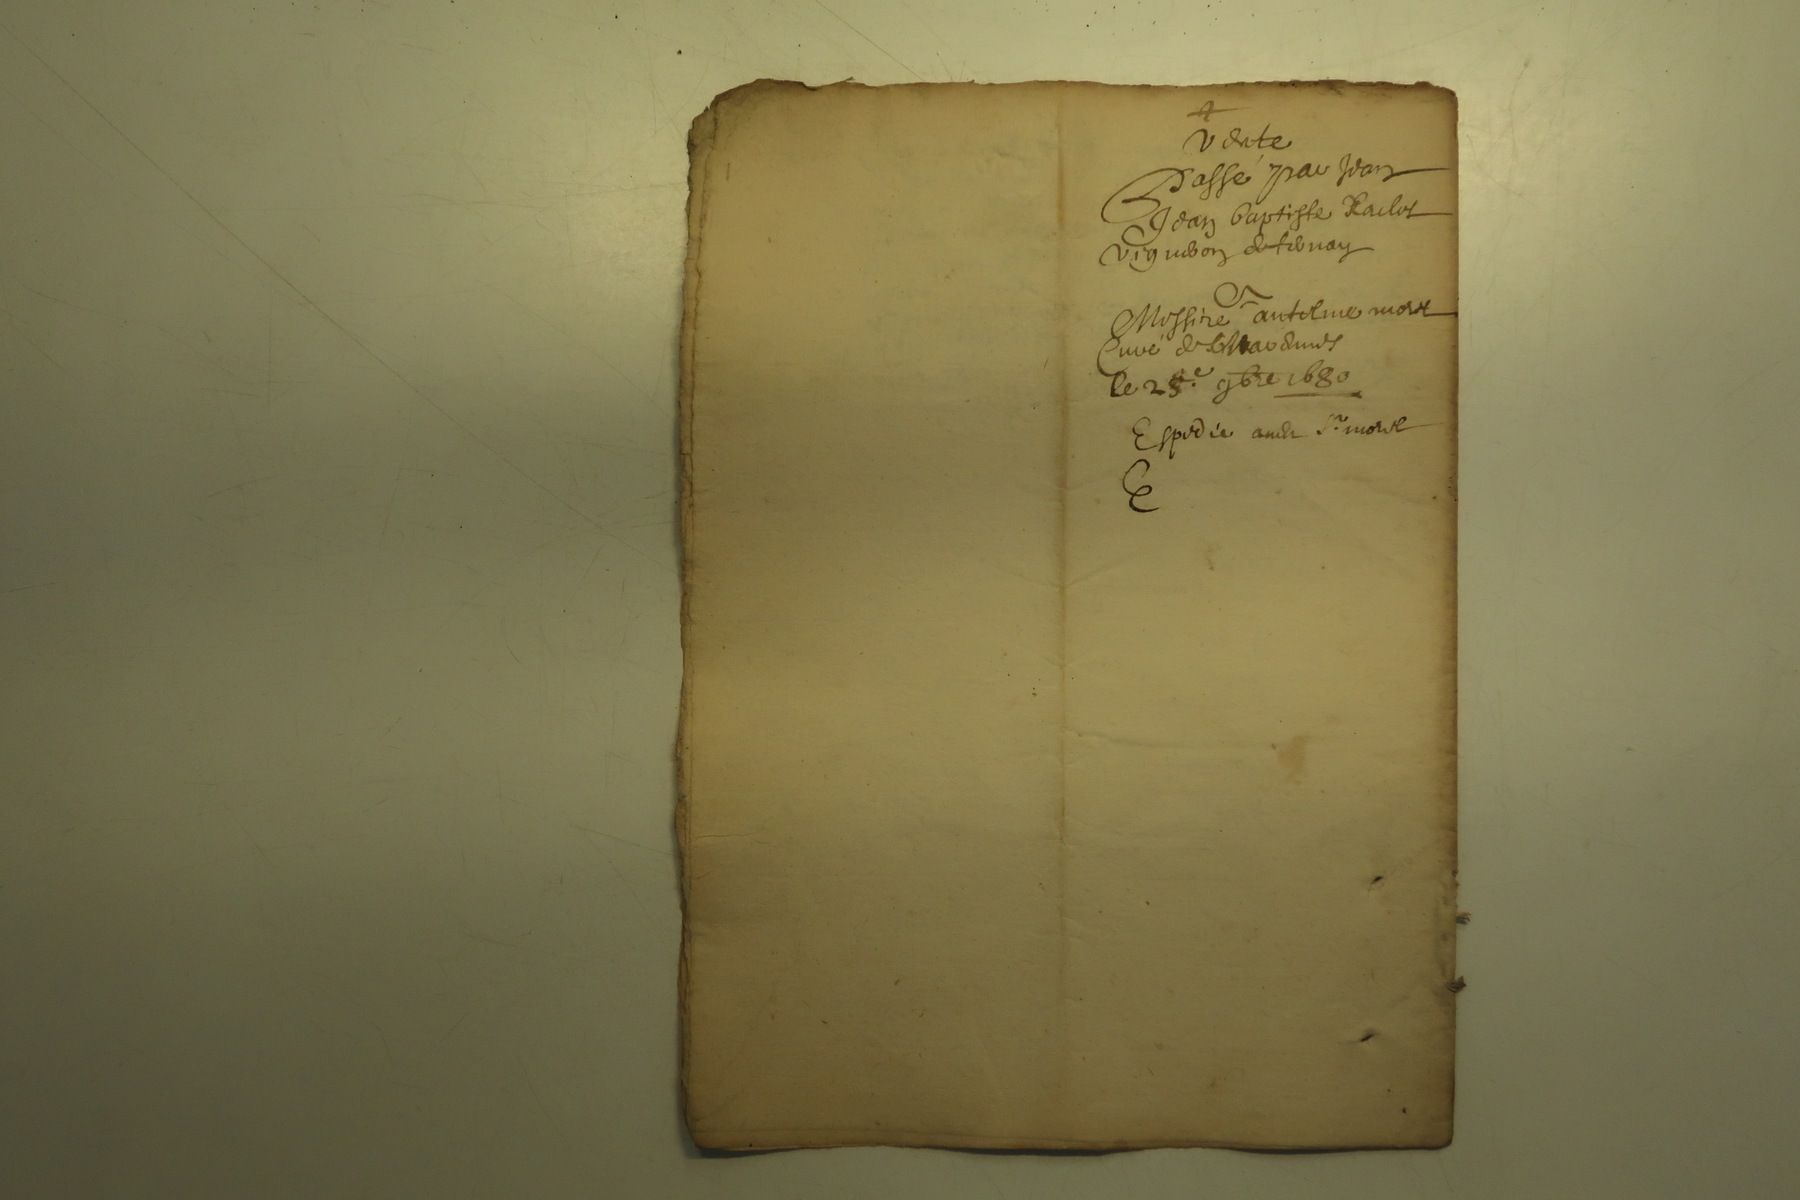 Vente
Passé par Jean
Jean baptiste Raclet
Vigneron de
A
Messire antelme morel
Curé de
le 25.e 9bre 1680
Expedié audt Sr morel